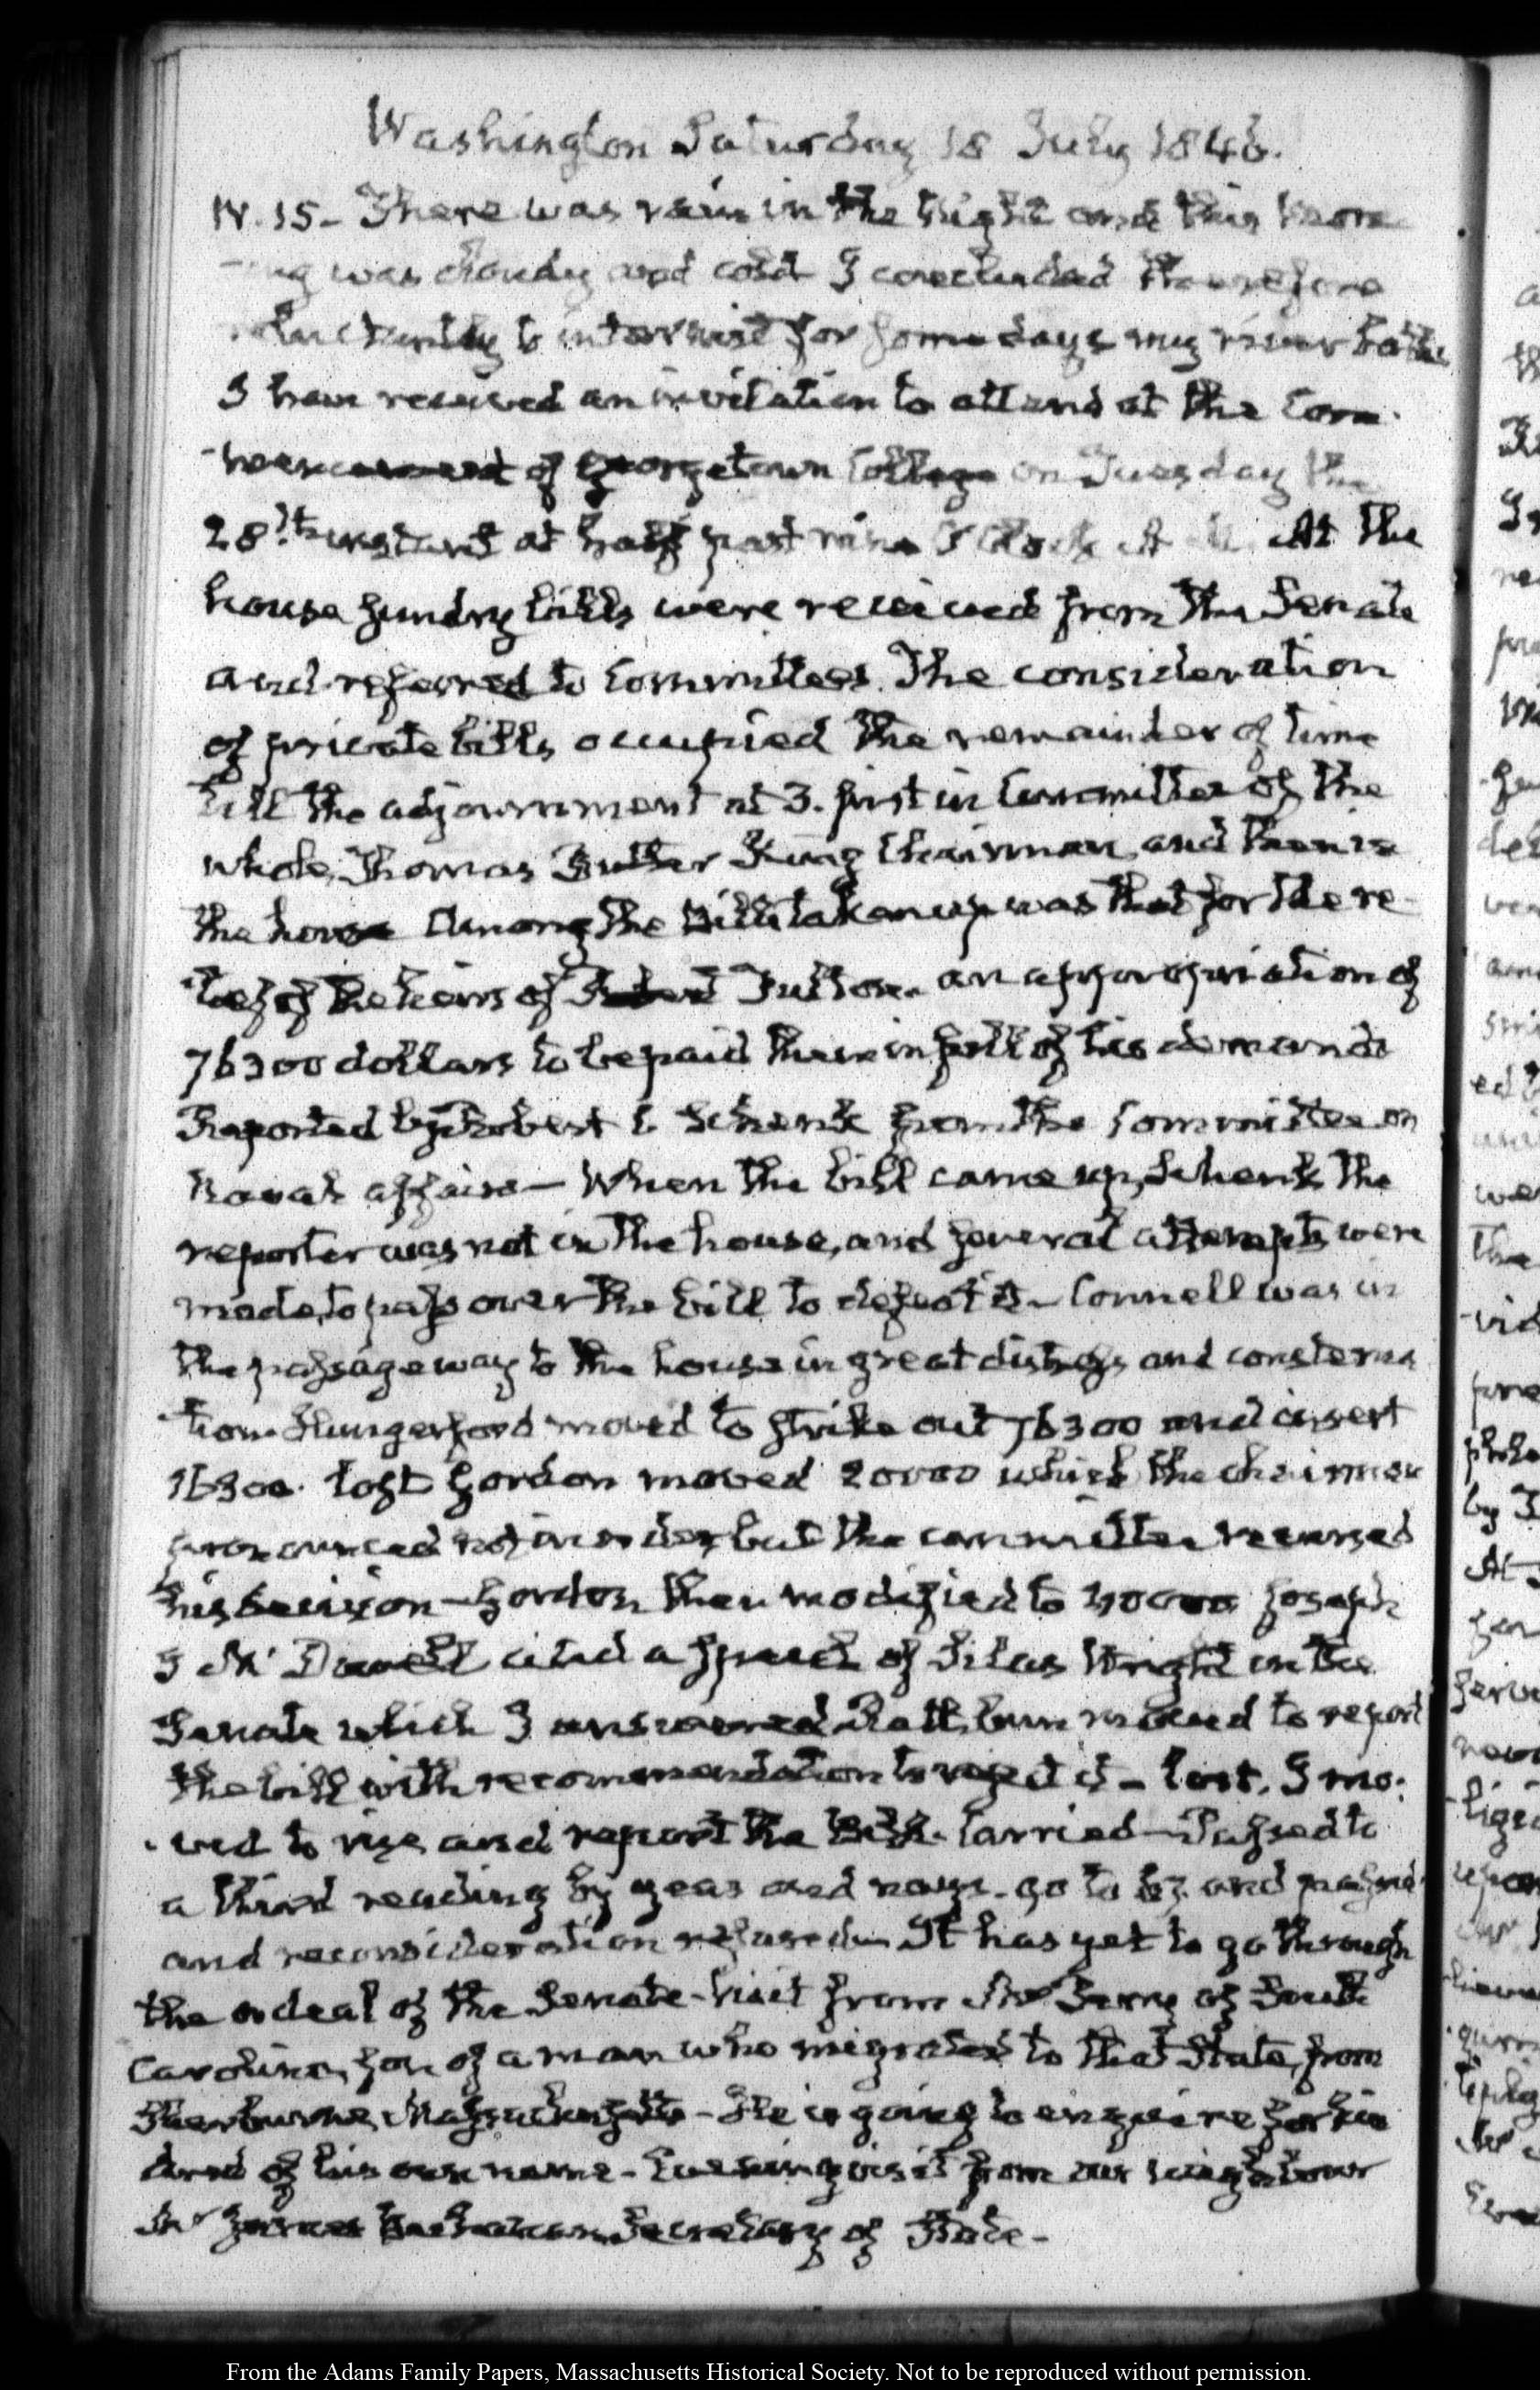 Washington Saturday 18 July 1846.
IV. 15 - There was rain in the night and this morn
-ing was cloudy and cold I concluded therefore
reluctantly to intermit for some days my river bath
I have received an invitation to attend at the Com-
-mencement of Georgetown College on Tuesday the
28th instant at half past nine O'Clock A.M. At the
house sundry bills were received from the Senate
and referred to Committees. The consideration
of private bills occupied the remainder of time
till the adjournment at 3. first in Committee of the
whole, Thomas Butler King Chairman, and then in
the house Among the Bills taken up was that for the re-
-lief of the heirs of Robert Fulton. an appropriation of
76300 dollars to be paid them in full of his demands
Reported by Robert C. Schenck from the Committee on
Naval affairs - When the bill came up, Schenck the
reporter was not in the house, and several attempts were
made, to pass over the bill to defeat it - Connell was in
the passage way to the house in great distress and consterna
-tion. Hungerford moved to strike out 76300 and insert
16300. lost Gordon moved 20000 which the chairman
pronounced not in order, but the committee reversed
his decision - Gordon then modified to 40000 Joseph
J McDowell cited a speech of Silas Wright in the
Senate which I answered Rathbun moved to report
the bill with recommendation to reject it - lost. I mo-
-ved to rise and report the Bill. Carried - Passed to
a third reading by yeas and nays. 90 to 63 and passed
and reconsideration refused. It has yet to go through
the ordeal of the Senate - Visit from Mr Perry of South
Carolina, son of a man who migrated to that State, from
Sherburne, Massachusetts - He is going to enquire for kin
dred of his own name - Evening visit from our neighbour
Mr James Buchanan Secretary of State -
From the Adams Family Papers, Massachusetts Historical Society. Not to be reproduced without permission.